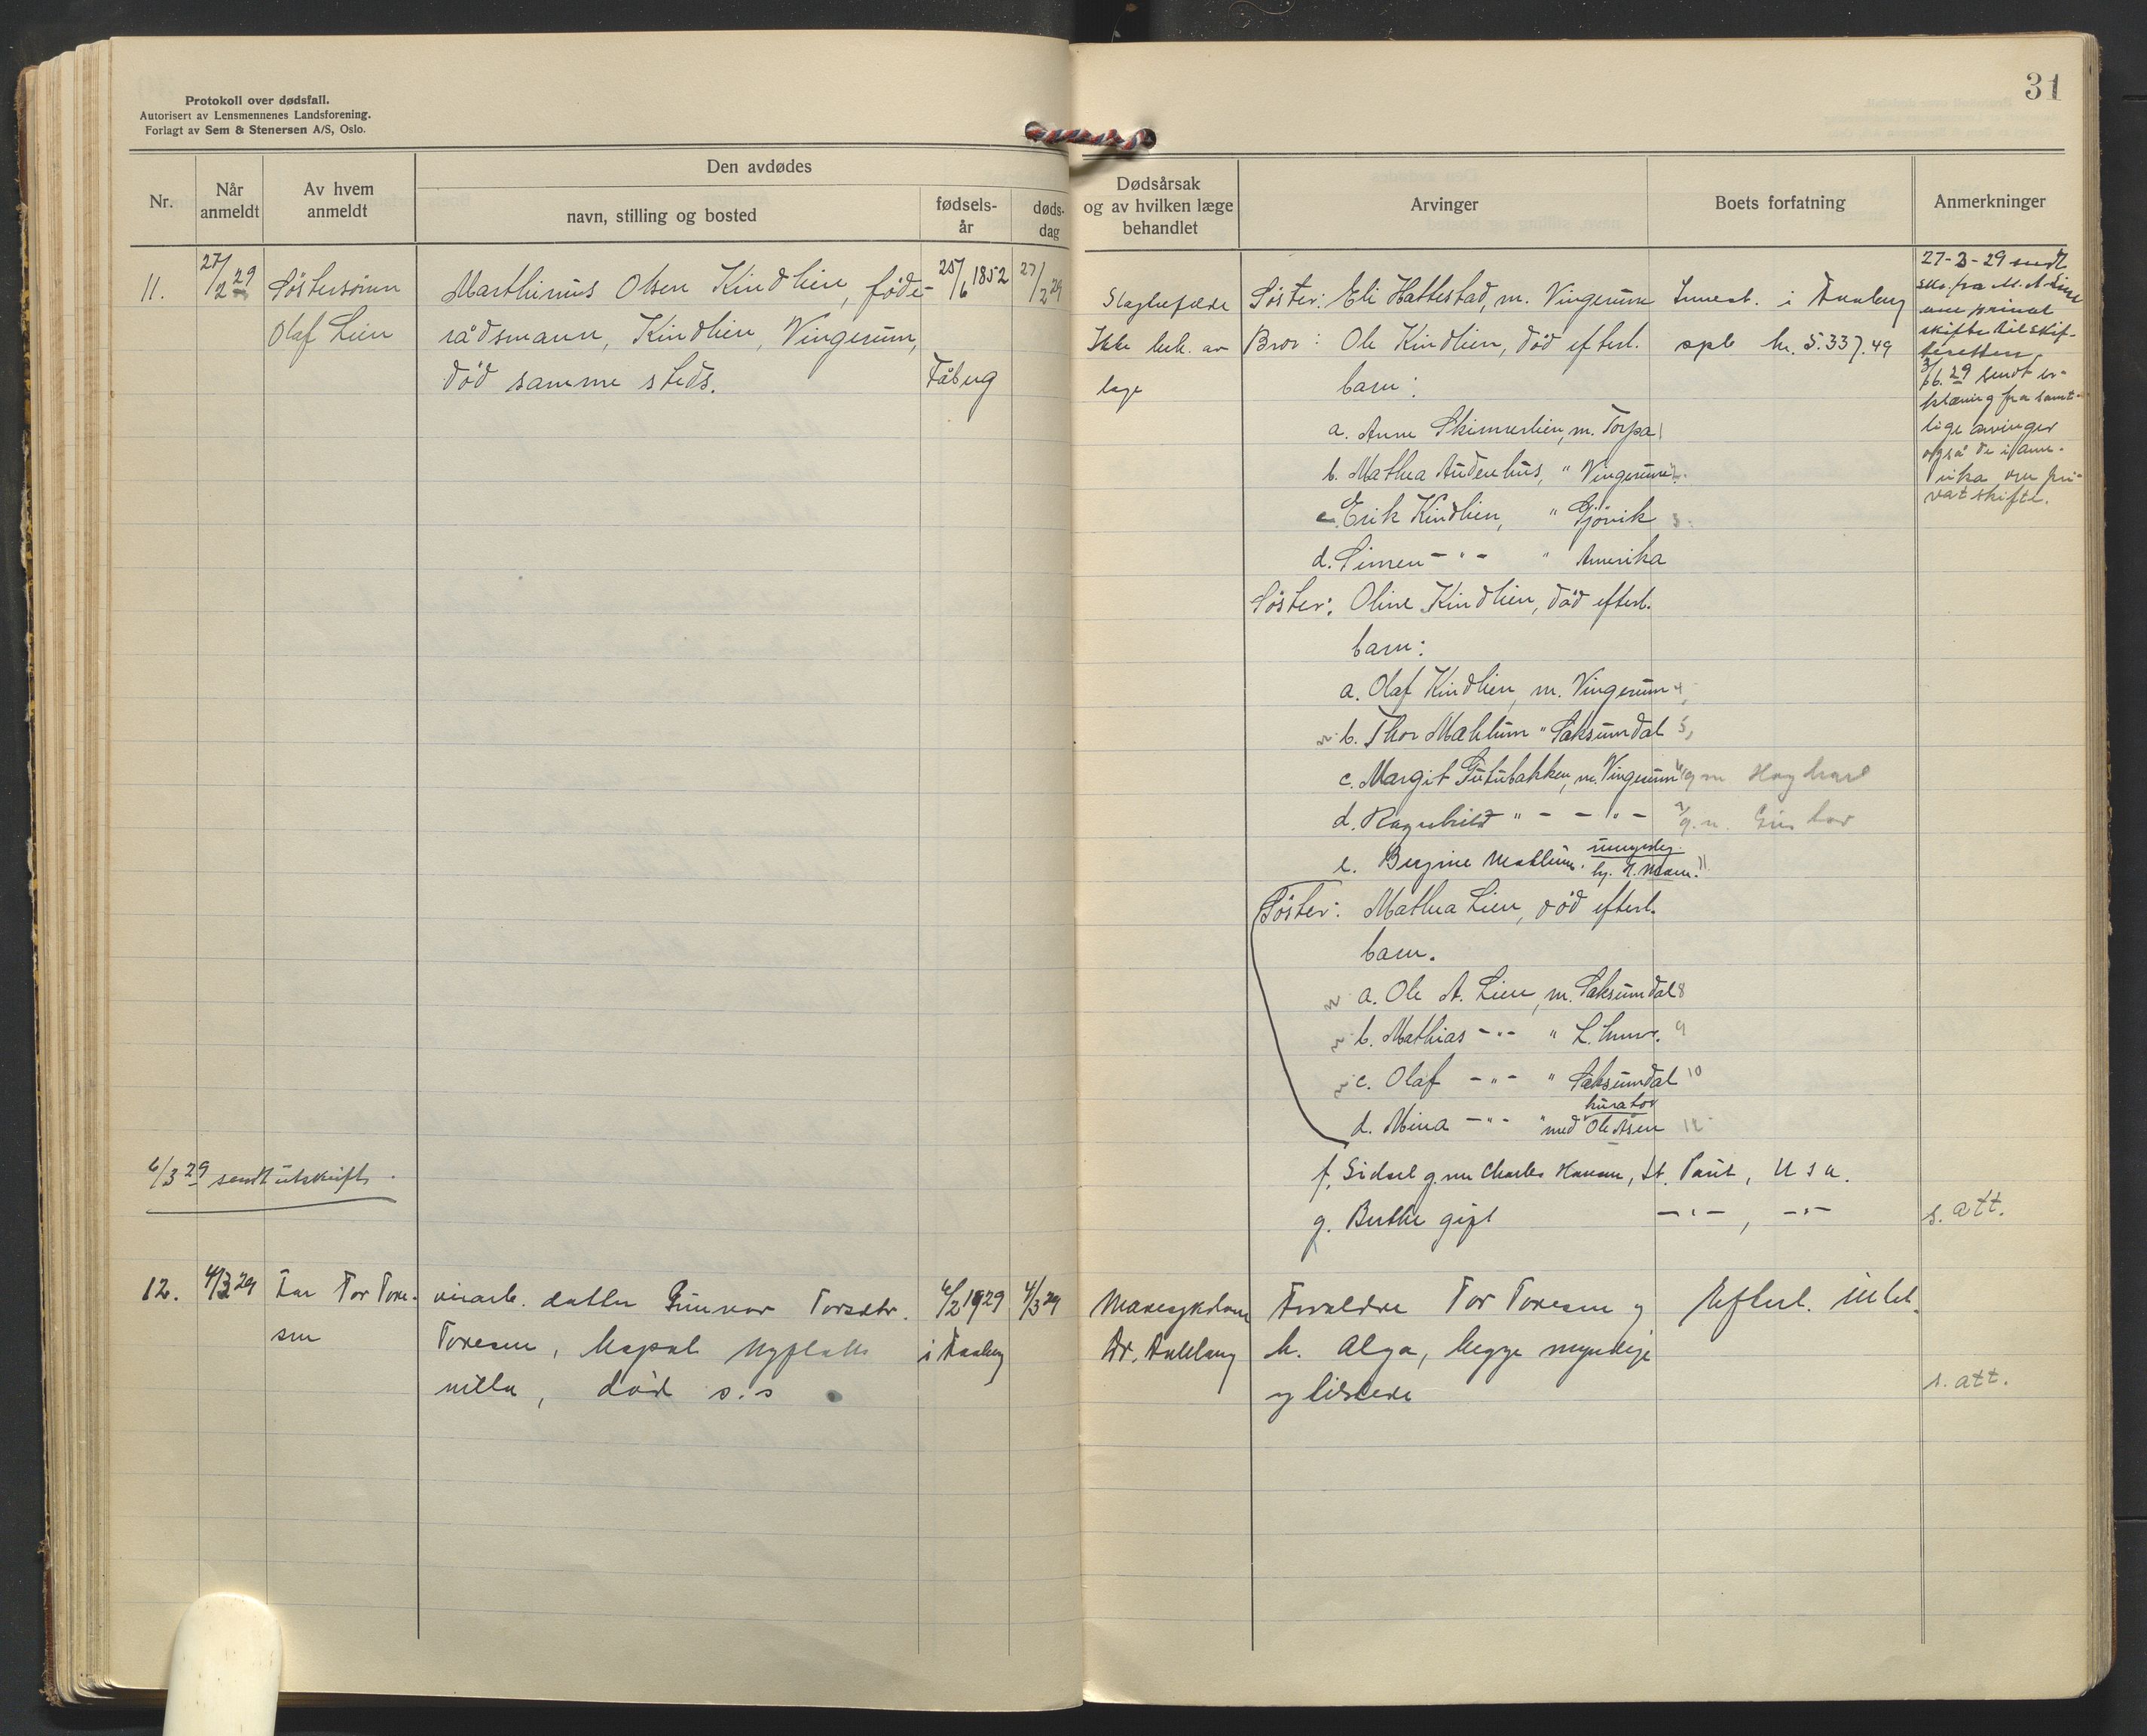 31
Protokoll over dødsfall.
Autorisert av Lensmennenes Landsforening.
Forlagt av Sem & Stenersen A/S, Oslo.
Nr.
Når anmeldt
Av hvem anmeldt
Den avdødes
navn, stilling og bosted
fødselsår
dødsdag
Dødsårsak
og av hvilken læge
behandlet
Arvinger
Boets forfatning
Anmerkninger
11.
27/2 29
Søstersønn
Olaf Lien
Marthinus Olsen Kindlien, føde-
rådsmann, Kindlien, Vingerum,
død samme steds.
25/6 1852
Fåberg
27/2 29
Slagtilfælde
Ikke beh. av
læge
Søster: Eli Hattestad, m. Vingerum
Bror: Ole Kindlien, død efterl.
barn:
a. Anne Skinnerlien, m. Torpa 1
b. Mathea Audenhus, " Vingerum 2.
c. Erik Kindlien, " Gjøvik 3.
d. Simen -"- " Amerika
Søster: Oline Kindlien, død efterl.
barn:
a. Olaf Kindlien, m. Vingerum 4,
b. Thor Mæhlum " Saksumdal 5,
c. Margit Tutubakken, m. Vingerum 6 g m
d. Ragnhild " - - " - 7 g. m.
e. Bergine Mæhlum. umyndig.
Søster: Mathea Lien, død efterl.
barn.
a. Ole A. Lien, m. Saksumdal 8
b. Mathias -"- " L.hmr. 9
c. Olaf -"- " Saksumdal 10
kurator
d. Mina -"- " med Ole Åsen 12
f. Sidsel g. m Charles Hansen, St. Paul, U S A.
g. Berthe gift -"-, -"-
Innest. i Faaberg
spb kr. 5.337.49
27-3-29 sendt
skifte til skif-
teretten.
3/6. 29 sendt er-
klæring fra samt-
lige arvinger
også de i Ame-
rika om pri-
vat skifte.
s. att.
6/3 29 sendt utskrift.
12.
4/3 29
Far Tor Tore-
sen
datter Gunvor Torsdtr.
Toresen,
død s.s
6/2 1929
i Faaberg
4/3 29
Mavesykdom
Dr.
Foreldre Tor Toresen og
h. Alga, begge myndige
og tilstede
Efterl. intet.
s. att.